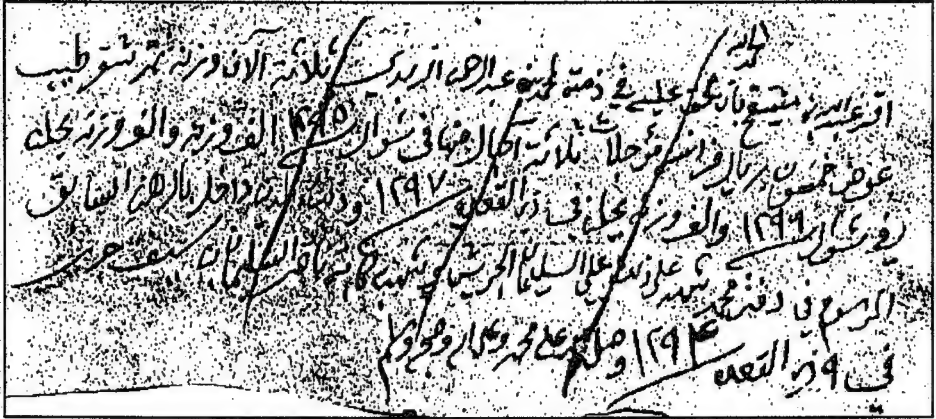 الحمد لله
أقر عبدالله بن مقبل بأن تحقق عليه في ذمته لمحمد بن عبدالرحمن الربدي ثلاثة آلاف وزنة تمر شقر طيب
عوض خمسون ريال فرانسه مؤجلات ثلاثة آجال منها في شوال ١٢٩٥ الف وزنه والف وزنه يحل
في شوال ١٢٩٦ والف وزنه يحل في ذي القعده ١٢٩٧ وذلك الدين داخل بالرهن السابق
المرسوم في دفتر محمد شهد على ذلك علي السليمان وشهد به ناصر السليمان بن سيف حرر
في ٩ ذي القعده ١٢٩٤ وصلى الله على محمد وعلى اله وصحبه وسلم